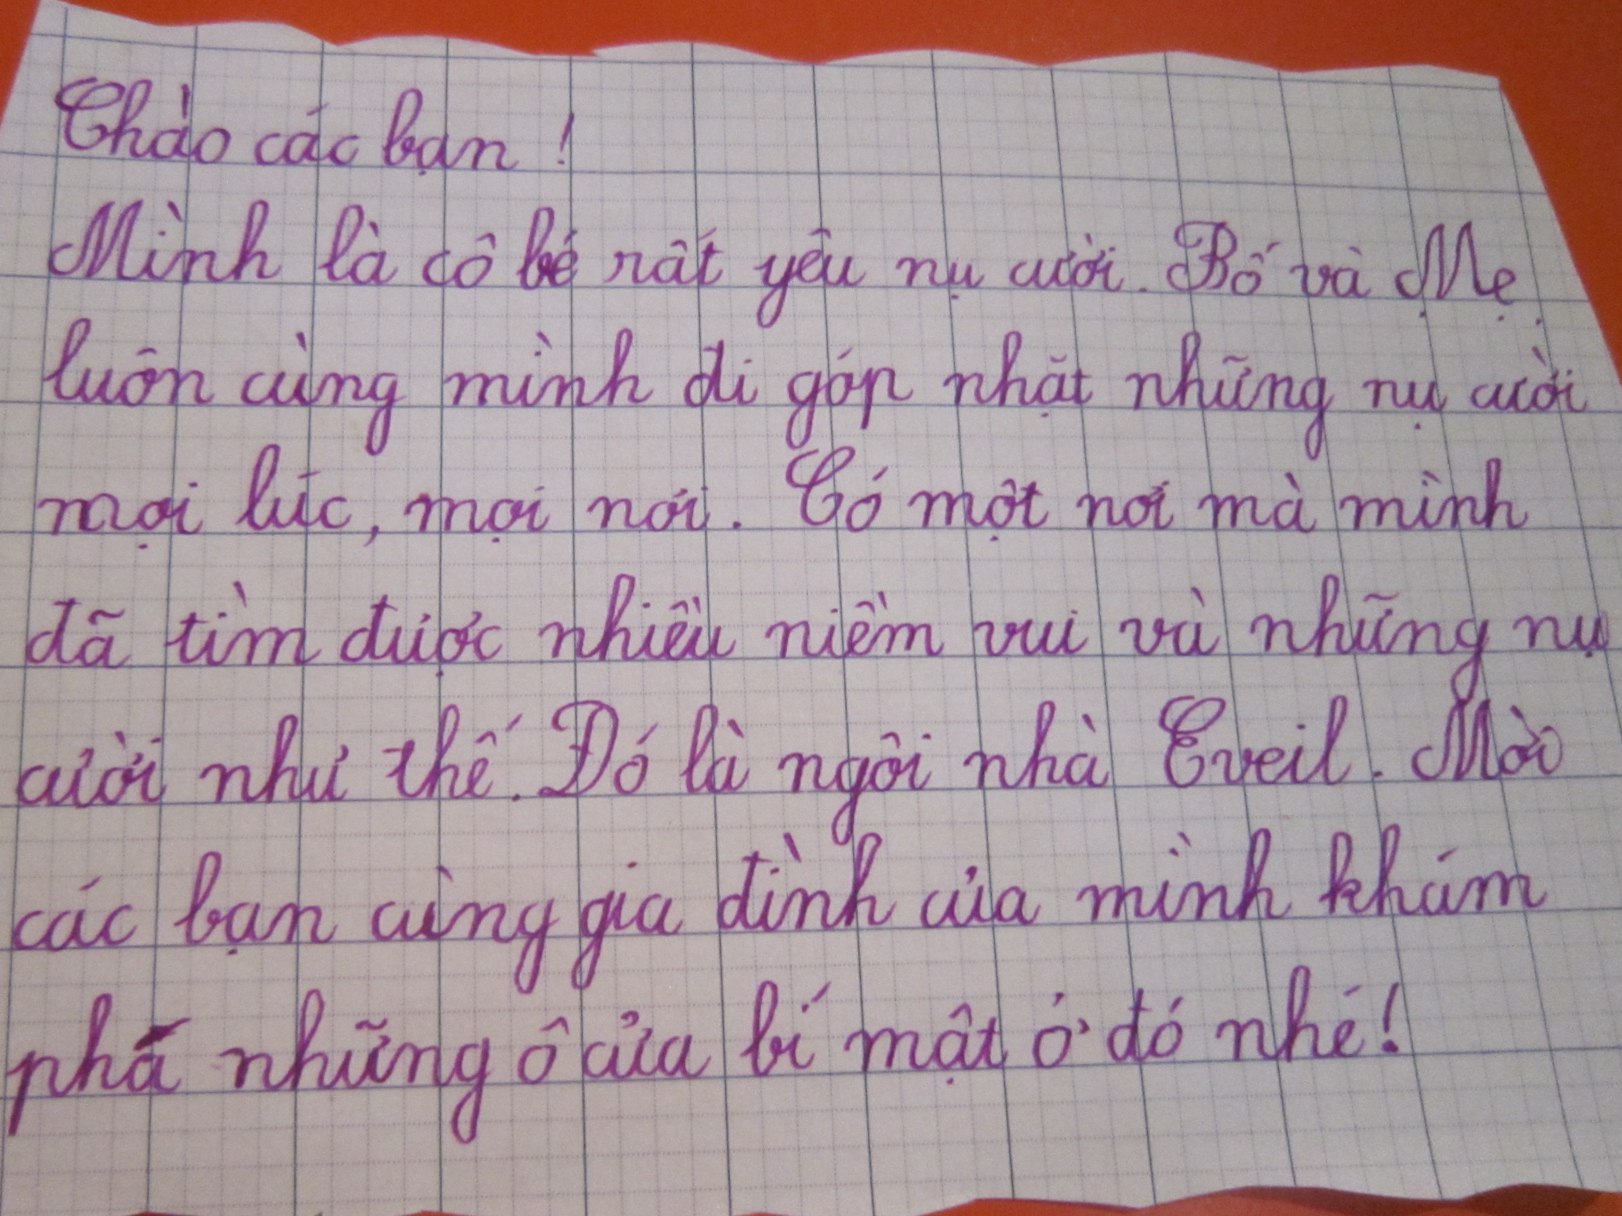 Chào các bạn !
Mình là cô bé rất yêu nụ cười. Bố và Mẹ
luôn cùng mình đi góp nhặt những nụ cười
mọi lúc, mọi nơi. Có một nơi mà mình
đã tìm được nhiều niềm vui và những nụ
cười như thế. Đó là ngôi nhà Eveil. Mời
các bạn cùng gia đình của mình khám
phá những ô cửa bí mật ở đó nhé!